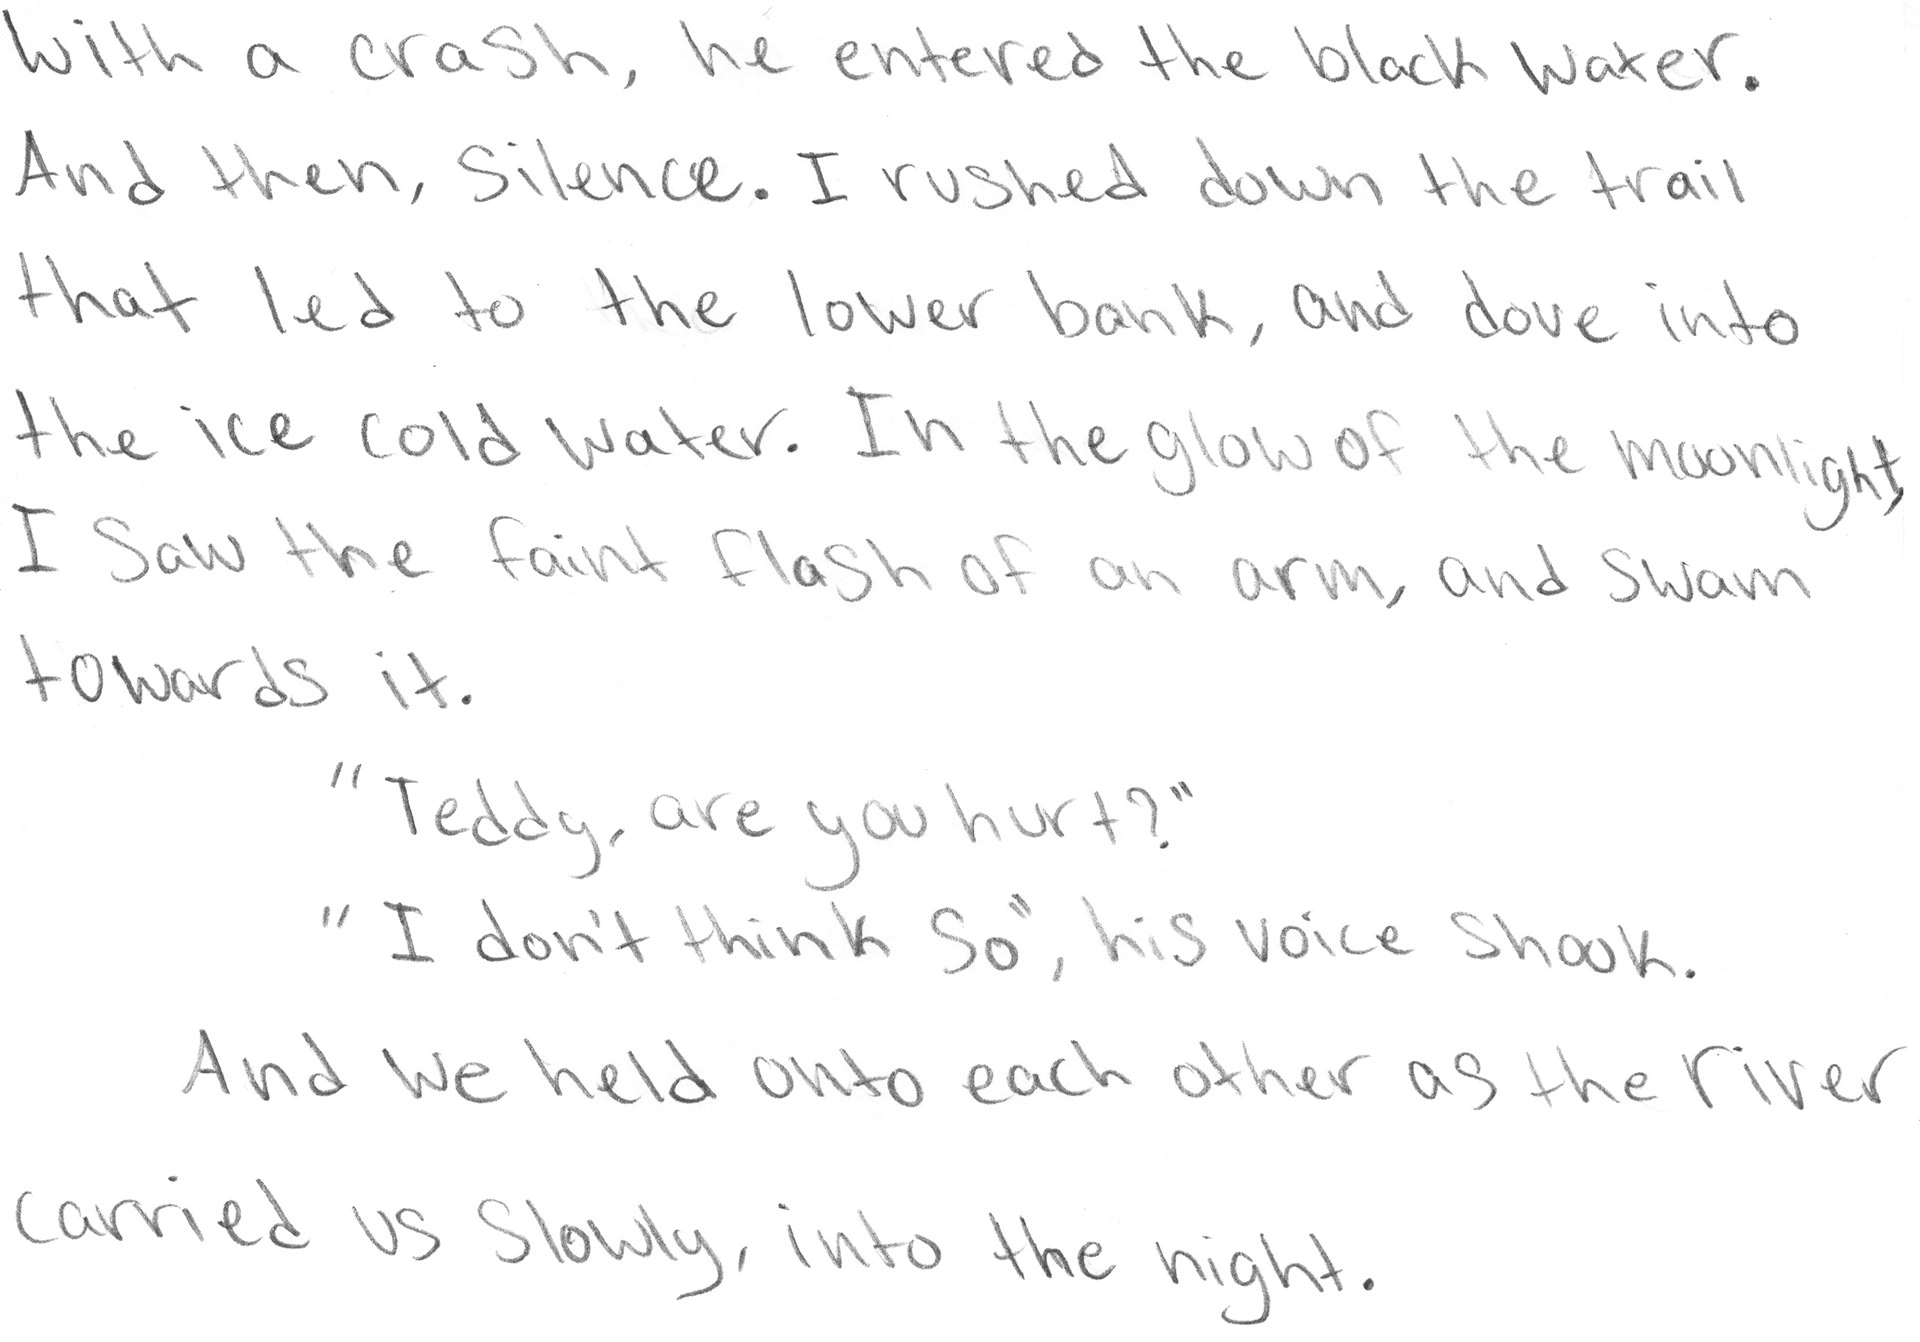 With a crash, he entered the black water.
And then, silence. I rushed down the trail
that led to the lower bank, and dove into
the ice cold water. In the glow of the moonlight,
I saw the faint flash of an arm, and swam
towards it.
"Teddy, are you hurt?"
"I don't think so", his voice shook.
And we held onto each other as the river
carried us slowly, into the night.